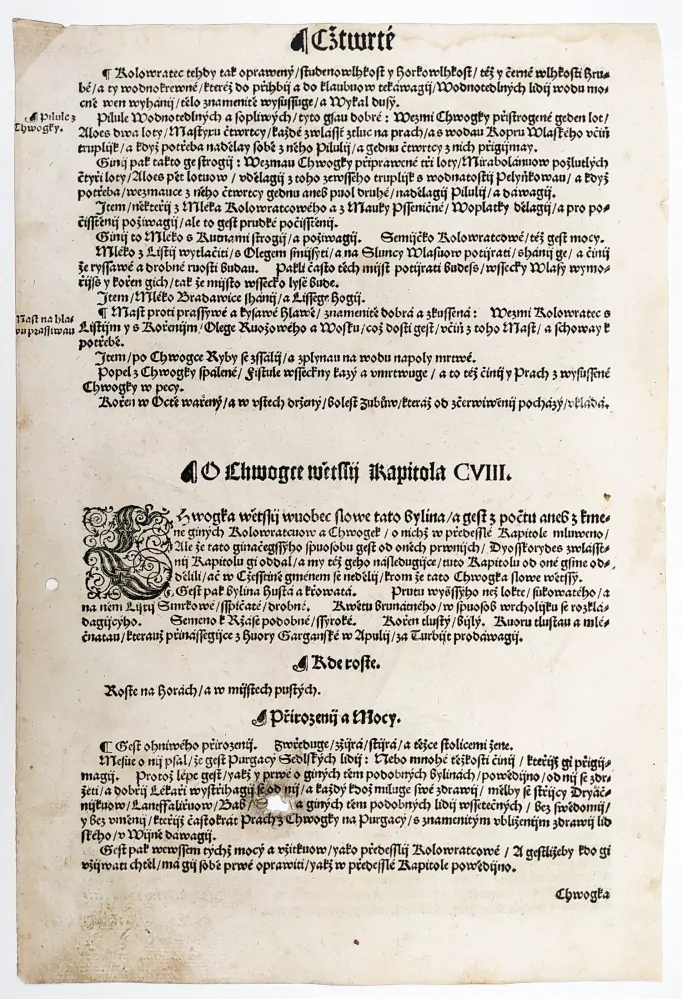 Cžtwrté
¶ Kolowratec tehdy tak oprawený/studenowlhkost y Horkowlhkost/též y černé wlhkosti hru-
bé/a ty wodnokrewné/kteréž do příhbij a do klaubuow tekáwagij/Wodnotedlných lidij wodu mo-
cně wen wyhánij/tělo znamenitě wysussuge/a Wykal dusý.
Pilule z
Chwogky.
Pilule Wodnotedlných a sípliwých/tyto gsau dobré: Wezmi Chwogky přistrogené geden lot/
Aloes dwa loty/Mastyxu čtwrtcy/každé zwlásst ztluc na prach/a s wodau Kopru Wlaského včiň
truplijk/a když potřeba nadělay sobě z něho Pilulij/a gednu čtwrtcy z nich přigijmay.
Ginij pak takto ge strogij: Wezmau Chwogky připrawené tři loty/Mirabolánuow požlutlých
čtyři loty/Aloes pět lotuow/vdělagij z toho zewsseho truplijk s wodnatostij Pelyňkowau/a když
potřeba/wezmauce z něho čtwrtcy gednu aneb puol druhé/nadělagij Pilulij/a dáwagij.
Item/někteřij z Mléka Kolowratcowého a z Mauky Pssеničné/Woplatky dělagij/a pro po-
čisstěnij požiwagij/ale to gest prudké počisstěnij.
Ginij to Mléko s Kutnami strogij/a požiwagij. Semijčko Kolowratcowé/též gest mocy.
Mléko z Listij wytlačiti/s Olegem smijsyti/a na Sluncy Wlasuow potijrati/shánij ge/a činij
že ryssawé a drobné ruosti budau. Pakli často těch mijst potijrati budess/wssecky Wlasy wymo-
řijss y kořen gich/tak že mijsto wssecko lysé bude.
Item/Mléko Bradawice shánij/a Lissege hogij.
Mast na hla-
wu prassiwau
¶ Mast proti prassywé a kysawé Hlawě/znamenitě dobrá a zkussená: Wezmi Kolowratec s
Listijm y s Kořenijm/Olege Ruožowého a Wosku/což dosti gest/včiň z toho Mast/a schoway k
potřebě.
Item/po Chwogce Ryby se zssálij/a zplynau na wodu napoly mrtwé.
Popel z Chwogky spálené/Fistule wssecky kazý a vmrtwuge/a to též činij y Prach z wysussené
Chwogky w pecy.
Kořen w Octě wařený/a w vstech držený/bolest Zubůw/kteráž od zčerwiwěnij pocházý/vkládá.
O Chwogce wětssij Kapitola CVIII.
CHwogka wětssij wuobec slowe tato bylina/a gest z počtu aneb z kme-
ne giných Kolowratcuow a Chwogek/o nichž w předesslé Kapitole mluweno/
Ale že tato ginačegssýho spuosobu gest od oněch prwnijch/Dyoskorydes zwlásst-
nij Kapitolu gi oddal/a my též geho následugijce/tuto Kapitolu od oné gsme od-
dělili/ač w Cžesstině gménem se nedělij/krom že tato Chwogka slowe wětssý.
Gest pak bylina hustá a křowatá. Prutu wyššýho než lokte/sukowatého/a
na něm Lijstij Smrkowé/ssspičaté/drobné. Kwětu brunátného/w spuosob wrcholijku se rozklá-
dagijcýho. Semeno k Ržase podobné/ssyroké. Kořen tlustý/bijlý. Kuoru tlustau a mlé-
čnatau/kterauž přinássegijce z Huory Garganské w Apulij/za Turbijt prodáwagij.
Kde roste.
Roste na Horách/a w mijstech pustých.
Přirozenij a Mocy.
¶ Gest ohniwého přirozenij. Zwředuge/zžijrá/stijrá/a těžce stolicemi žene.
Mesue o nij psal/že gest Purgacý Sedlských lidij: Nebo mnohé těžkosti činij/kteřijž gi přigij-
magij. Protož lépe gest/yakž y prwé o giných těm podobných bylinách/powědijno/od nij se zdr-
žeti/a dobřij Lékaři wystřihagij se od nij/a každý kdož miluge swé zdrawij/měl by se střijcy Dryáč-
nijkuow/Lantffalijruow/Bab/ a giných těm podobných lidij wssetečných/bez swědomij/
y bez vměnij/kteřijž častokrát Prach z Chwogky na Purgacý/s znamenitým vbližením zdrawij lid
ského/v Wijně dáwagij.
Gest pak wewssem týchž mocý a vžitkuow/yako předesslij Kolowratcowé/A gestližeby kdo gi
vžijwati chtěl/má gij sobě prwé oprawiti/yakž w předesslé Kapitole powědijno.
Chwogka